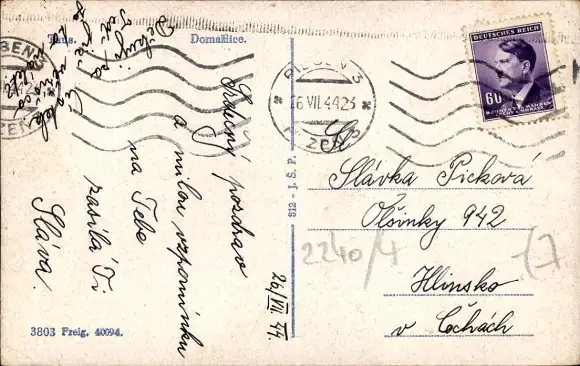 Taus. Domažlice.
Srdečný pozdrav
a milou vzpomínku
na Tebe
zasílá Ti
Sláva.
26/VII. 44.
3803 Freig. 40094.
S12 - J. S. P.
PILSEN 3
26.VII.44 23
PLZEŇ 3
DEUTSCHES REICH
60
BÖHMEN U. MÄHREN
ČECHY A MORAVA
Sl.
Slávka Picková
Olšinky 942
Hlinsko
v Čechách
2240/4